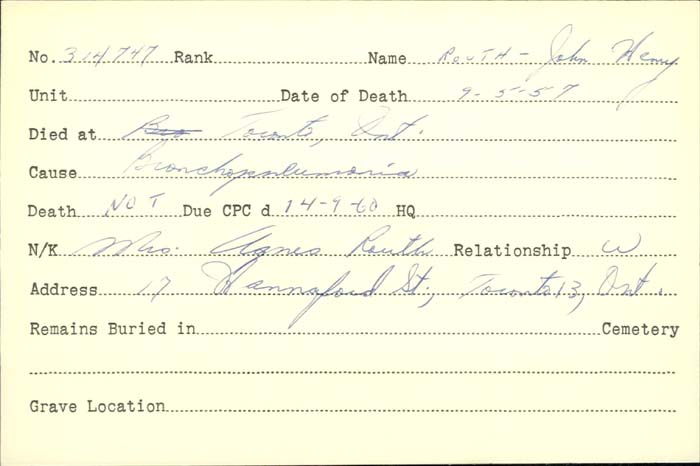 No. 314747 Rank Name ROUTH - John Henry
Unit Date of Death 9-5-57
Died at Bro Toronto, Ont.
Cause Bronchopneumonia
Death NOT Due CPC d 14-9-60 HQ
N/K Mrs. Agnes Routh Relationship W
Address 17 Hannaford St., Toronto 13, Ont.
Remains Buried in Cemetery
Grave Location